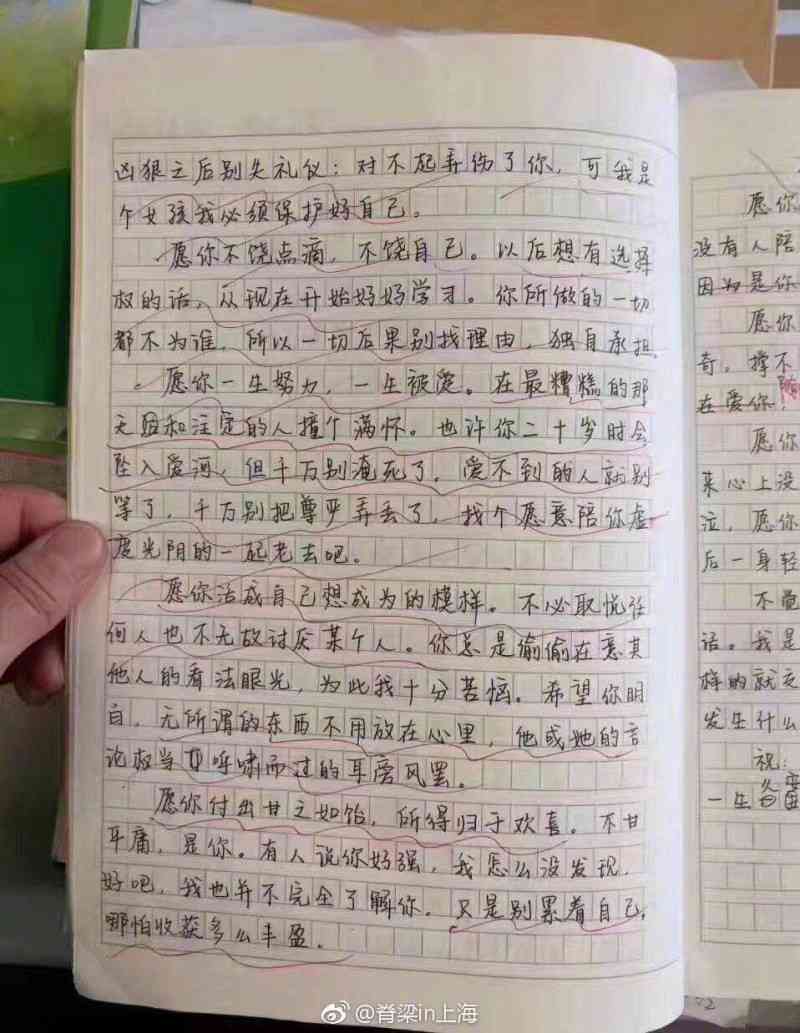 凶狠之后别失礼仪：对不起弄伤了你，可我是
个女孩我必须保护好自己。
愿你不饶点滴，不饶自己。以后想有选择
权的话，从现在开始好好学习。你所做的一切
都不为谁，所以一切后果别找理由，独自承担。
愿你一生努力，一生被爱。在最糟糕的那
天跟和注定的人撞个满怀。也许你二十岁时会
坠入爱河，但千万别淹死了，爱不到的人就别
等了，千万别把尊严弄丢了，找个愿意陪你虚
度光阴的一起老去吧。
愿你活成自己想成为的模样。不必取悦任
何人也不无故讨厌某个人。你总是偷偷在意其
他人的看法眼光，为此我十分苦恼。希望你明
白，无所谓的东西不用放在心里，他或她的言
论权当呼啸而过的耳旁风罢。
愿你付出甘之如饴，所得归于欢喜。不甘
平庸，是你。有人说你好强，我怎么没发现，
好吧，我也并不完全了解你。只是别累着自己，
哪怕收获多么丰盈。
愿你
没有人陪
因为是你
愿你
奇，撑不
在爱你
愿你
来心上没
泣，愿你
后一身轻
不觉
话。我是
样的就交
发生什么
祝：
一生
@脊梁in上海